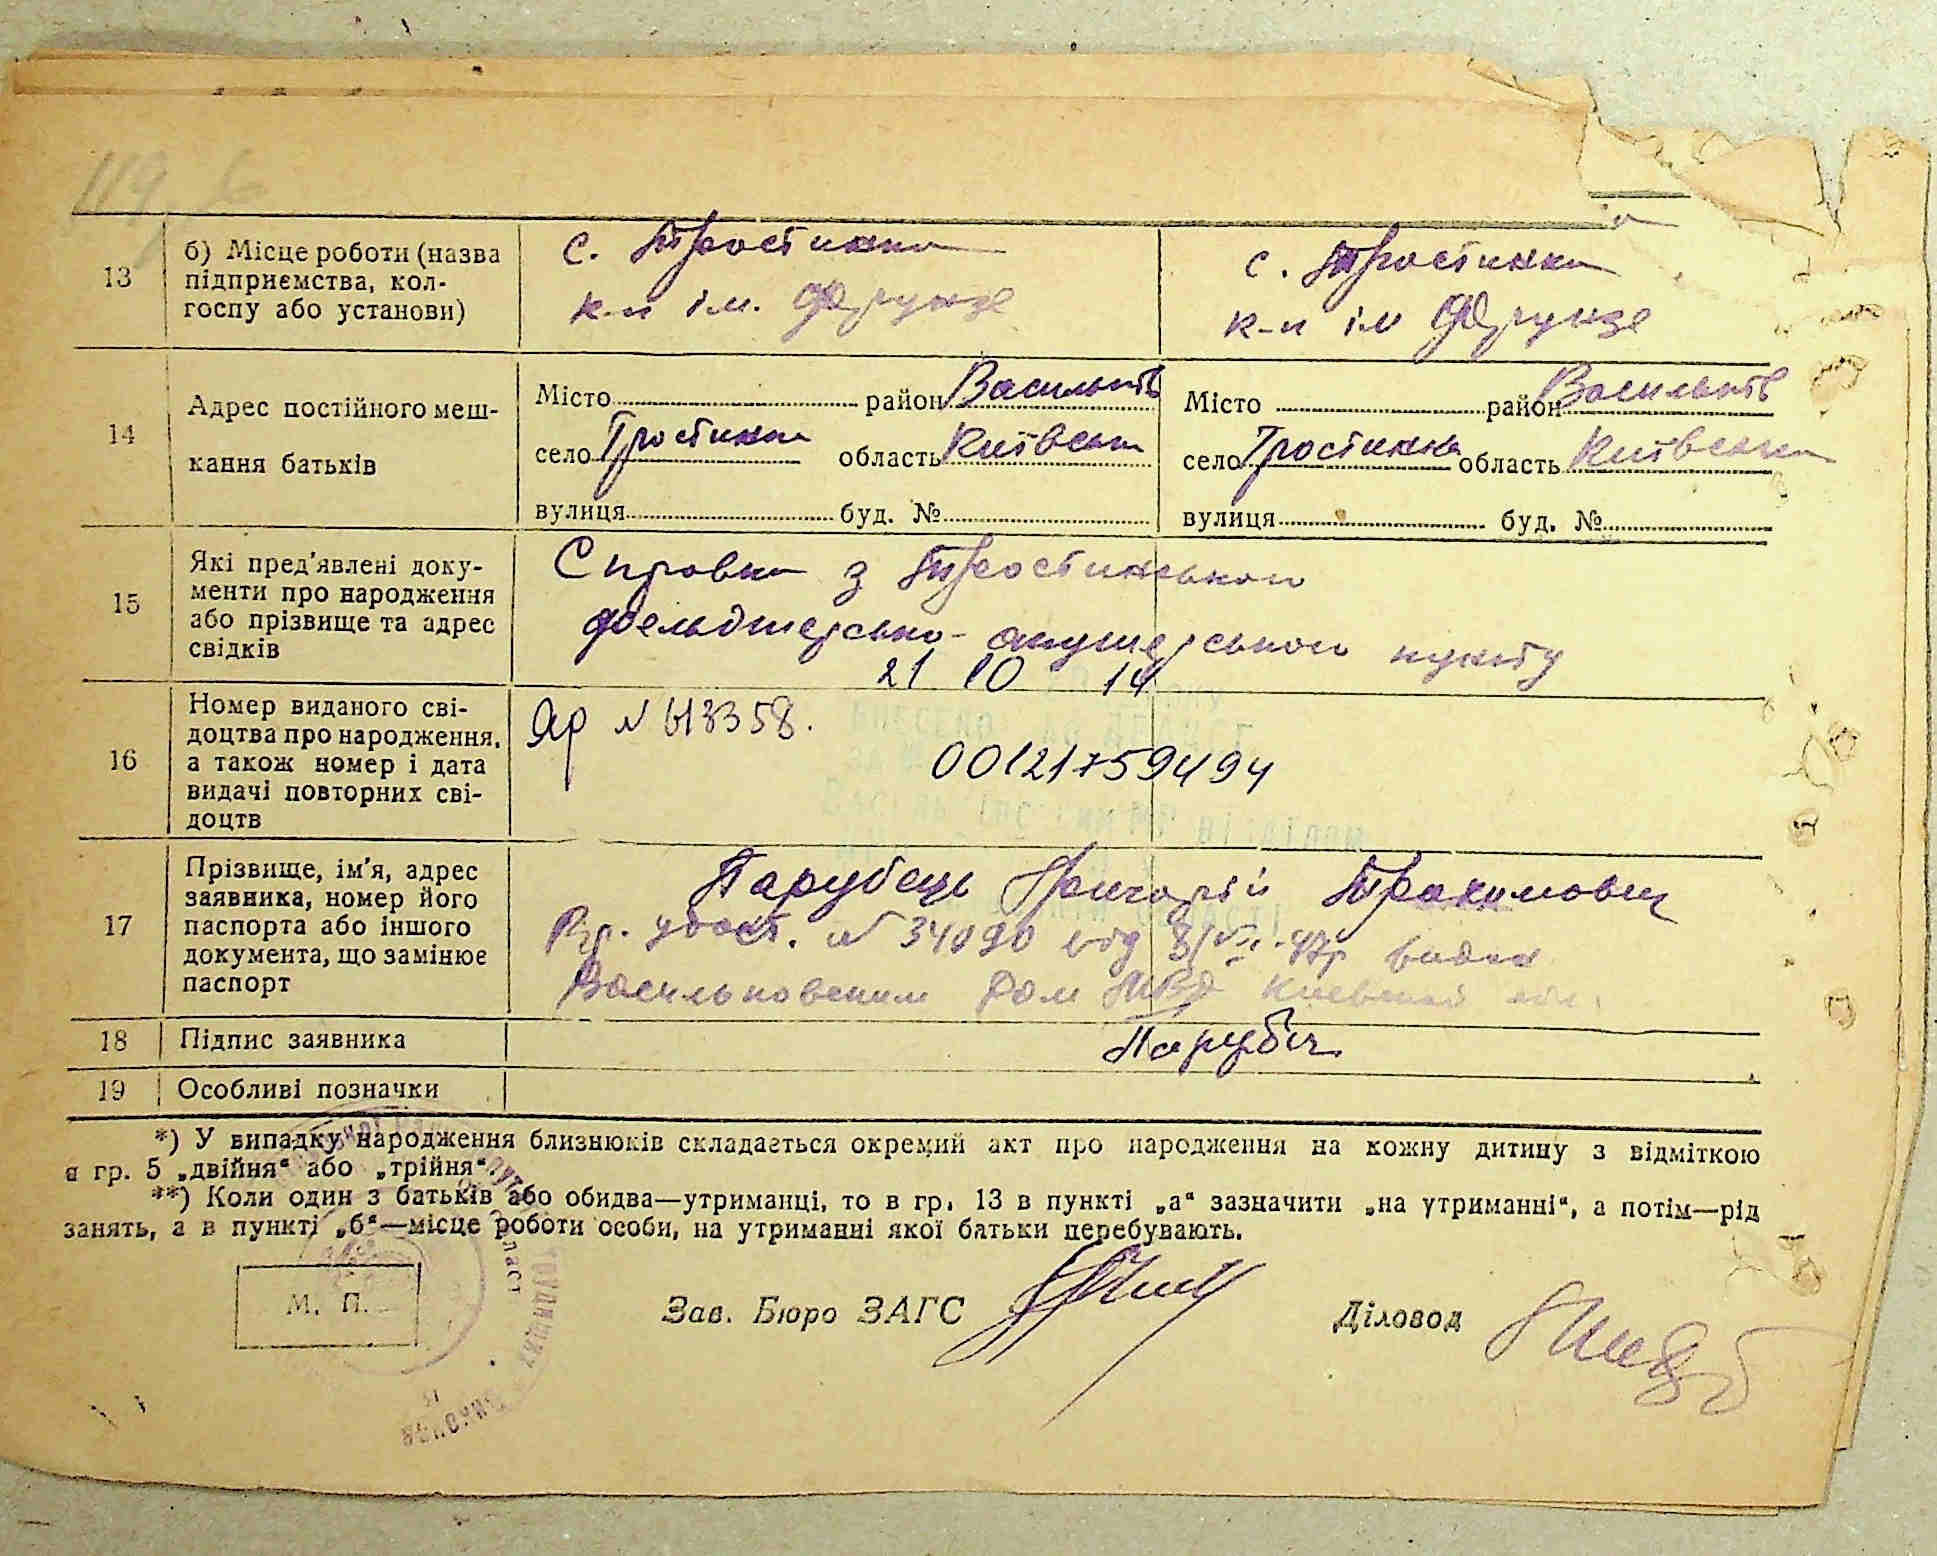 119
13
б) Місце роботи (назва
підприємства, кол-
госпу або установи)
с. Тростинка
к-п ім. Фрунзе
с. Тростинка
к-п ім Фрунзе
14
Адрес постійного меш-
кання батьків
Місто район Васильків
село Тростинка область Київська
вулиця буд. №
Місто район Васильків
село Тростинка область Київська
вулиця буд. №
15
Які пред'явлені доку-
менти про народження
або прізвище та адрес
свідків
Справка з Тростинського
фельдшерсько-акушерського пункту
21 10 14
16
Номер виданого сві-
доцтва про народження,
а також номер і дата
видачі повторних сві-
доцтв
ЯР N 613358.
00121759494
17
Прізвище, ім'я, адрес
заявника, номер його
паспорта або іншого
документа, що замінює
паспорт
Парубець Григорій Трохимович
N 34090 від
Васильковским МВД Киевской обл.
18
Підпис заявника
19
Особливі позначки
*) У випадку народження близнюків складається окремий акт про народження на кожну дитину з відміткою
в гр. 5 „двійня“ або „трійня“.
**) Коли один з батьків або обидва—утриманці, то в гр. 13 в пункті „а“ зазначити „на утриманні“, а потім—рід
занять, а в пункті „б“—місце роботи особи, на утриманні якої батьки перебувають.
М. П.
Зав. Бюро ЗАГС
Діловод